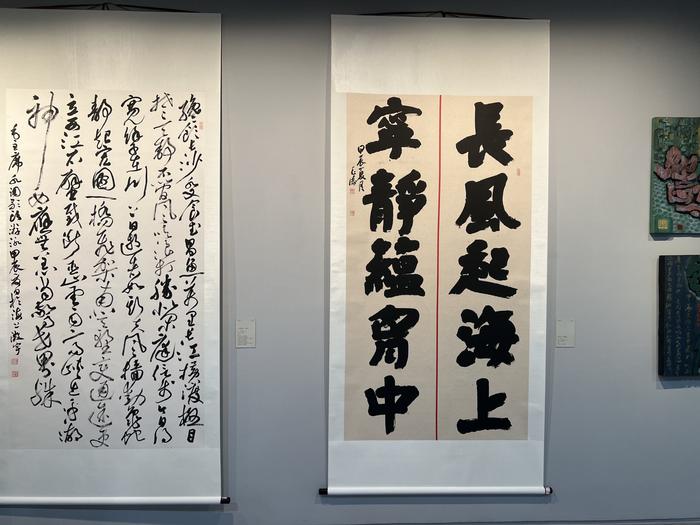 長風起海上
寧靜蘊胷中
甲辰夏月
長沙水又食武昌魚萬里長江橫渡極目
楚天舒不管風吹浪打勝似閑庭信步今日得
寬餘子在川上曰逝者如斯夫風檣動龜蛇
靜起宏圖一橋飛架南北天塹變通途更
立西江石壁截斷巫山雲雨高峽出平湖
神女應無恙當驚世界殊
毛主席水調歌頭游泳甲辰夏日於海上